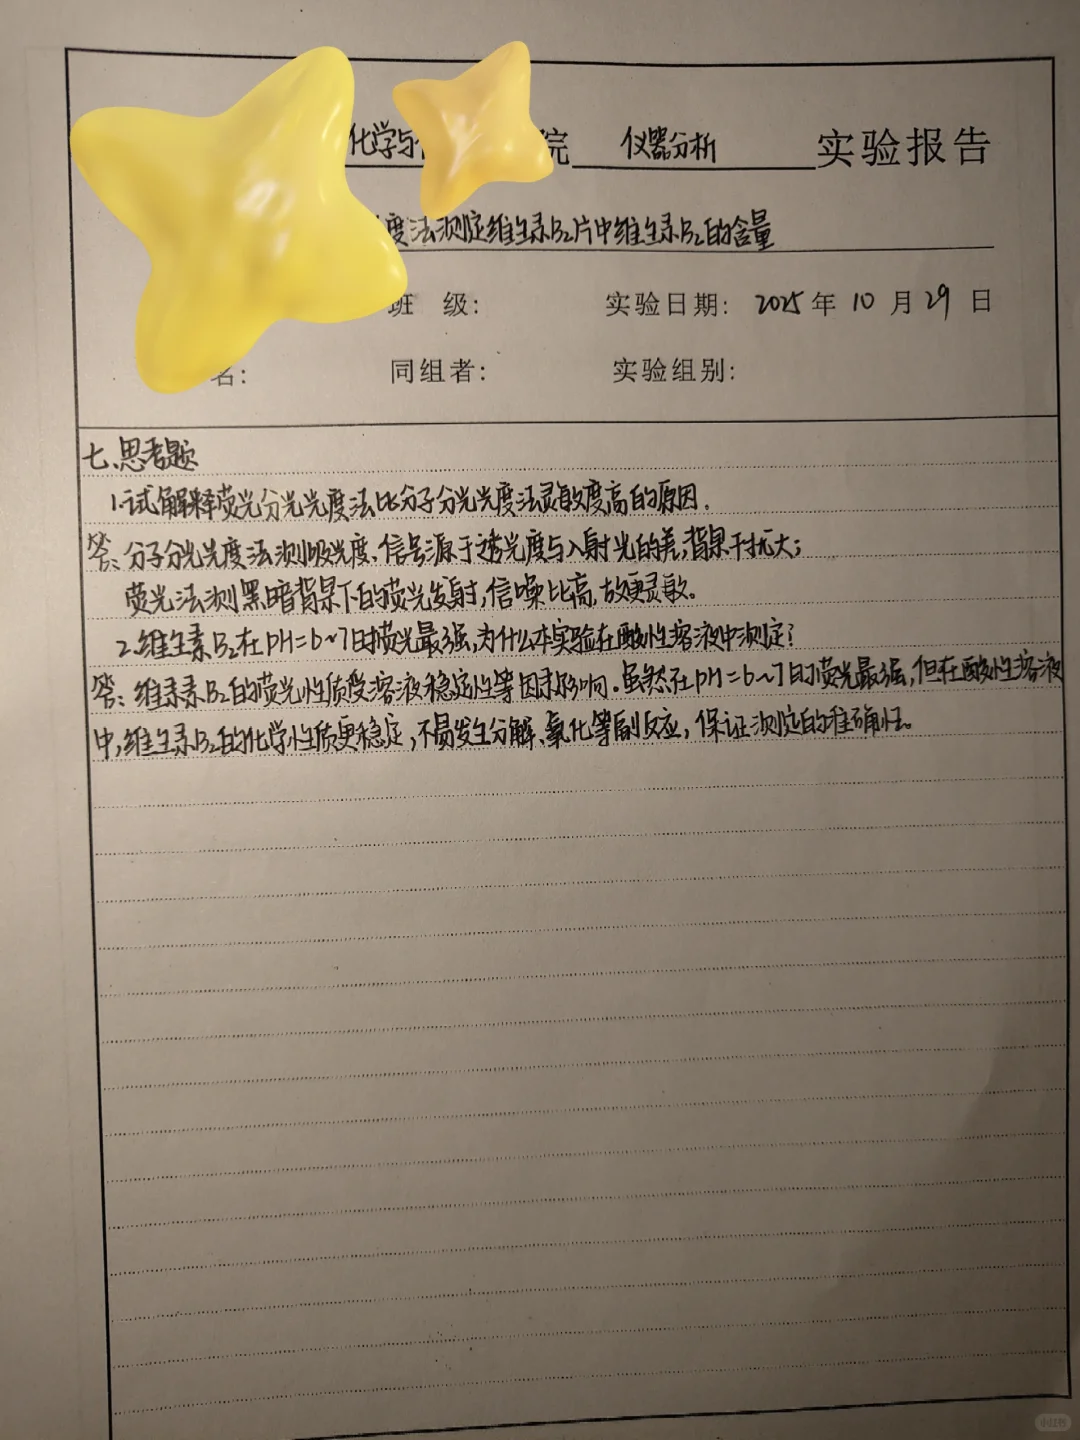 化学与 院 仪器分析 实验报告
度法测定维生素B₂片中维生素B₂的含量
班 级: 实验日期: 2025 年 10 月 29 日
名: 同组者: 实验组别:
七、思考题
1.试解释荧光分光光度法比分子分光光度法灵敏度高的原因.
答:分子分光光度法测吸光度,信号源于透光度与入射光的差,背景干扰大;
荧光法测黑暗背景下的荧光发射,信噪比高,故更灵敏。
2.维生素B₂在pH=6~7时荧光最强,为什么本实验在酸性溶液中测定?
答:维素素B₂的荧光性质受溶液稳定性等因素影响.虽然在pH=6~7时荧光最强,但在酸性溶液
中,维生素B₂的化学性质更稳定,不易发生分解、氧化等副反应,保证测定的准确性。
小红书